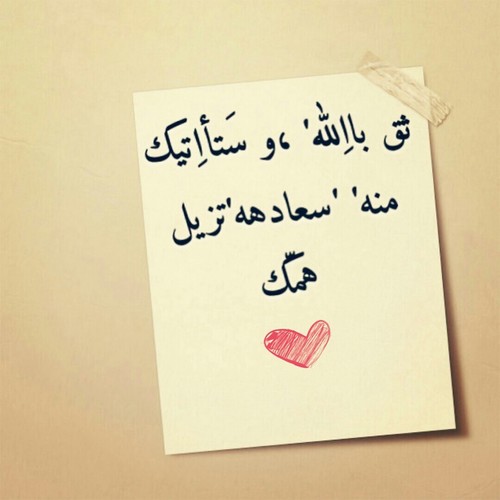 ثق بااِلله' ،و سَتأاِتيك
منه' 'سعادهه'تزيل
همّك